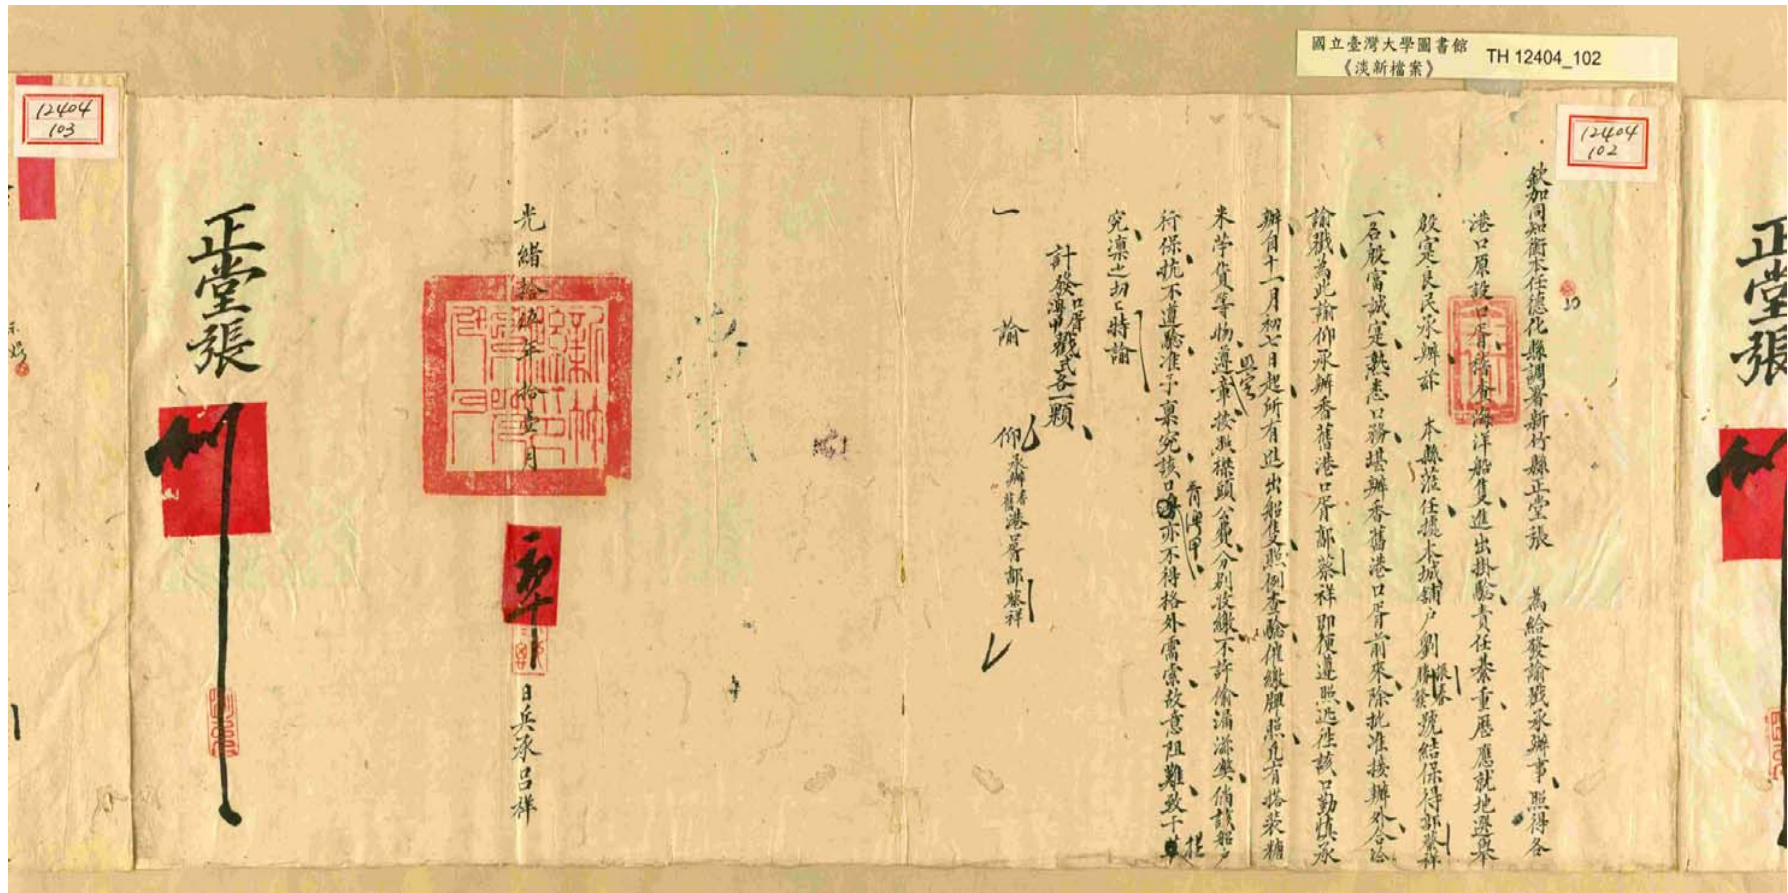 國立臺灣大學圖書館
《淡新檔案》
TH 12404_102
12404
102
欽加同知銜本任德化縣調署新竹縣正堂張 為給發諭戳承辦事照得各
港口原設口胥稽查海洋船隻進出掛驗責任綦重歷應就地選舉
殷寔良民承辦茲 本縣蒞任據本城舖戶劉振春勝發號結保得郭蔡祥
一名殷富誠寔熟悉口務堪辦香舊港口胥前來除批准接辦外合給
諭戳為此諭仰承辦香舊港口胥郭蔡祥即便遵照迅往該口勤慎承
辦自十一月初七日起所有進出船隻照例查驗催繳牌照凡有搭裝糖
米等貨等物遵章按照樑頭公費分別收繳不許偷漏滋弊倘該船戶
照定
行保抗不遵驗准予稟究該口亦不得格外需索故意阻難致干
胥澳甲
提
究凜之切切特諭
計發口胥澳甲戳式各一顆
一 諭 仰承辦香舊港口胥郭蔡祥
光緒拾伍年拾壹月 日兵承呂祥
正堂張
12404
103
正堂張